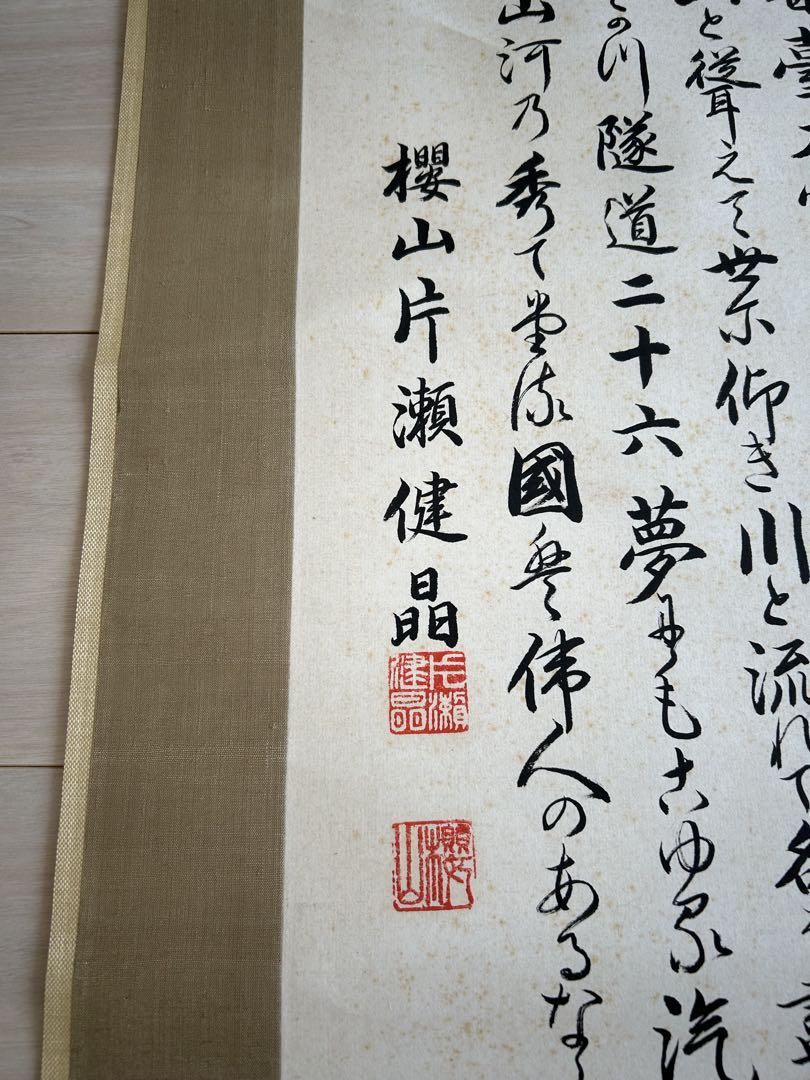 臺
と聳えて世尓仰き川と流れて
の川隧道二十六夢耳も古ゆる汽
山河乃秀て堂流國盤偉人のあるな
櫻山片瀬健晶
片瀬健晶
櫻山